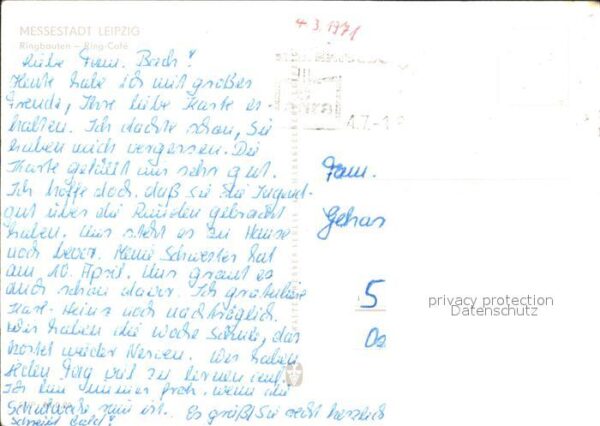 MESSESTADT LEIPZIG
Ringbauten – Ring-Café
4.3.1971
Liebe Fam. Bach!
Heute habe ich mit großer
Freude, Ihre liebe Karte er-
halten. Ich dachte schon, Sie
haben mich vergessen. Die
Karte gefällt mir sehr gut.
Ich hoffe doch, daß Sie die Jugend-
gut über die Runden gebracht
haben. Mir steht es zu Hause
noch bevor. Meine Schwester hat
am 10. April. Mir graut es
auch schon davor. Ich gratuliere
Karl-Heinz noch nachträglich.
Wir haben die Woche Schule, das
kostet wieder Nerven. Wir haben
jeden Tag viel zu lernen auf.
Ich bin immer froh, wenn die
Schulwoche rum ist. Es grüßt Sie recht herzlich
Schreibt bald!
4.7.-1
Fam.
5
privacy protection
Datenschutz